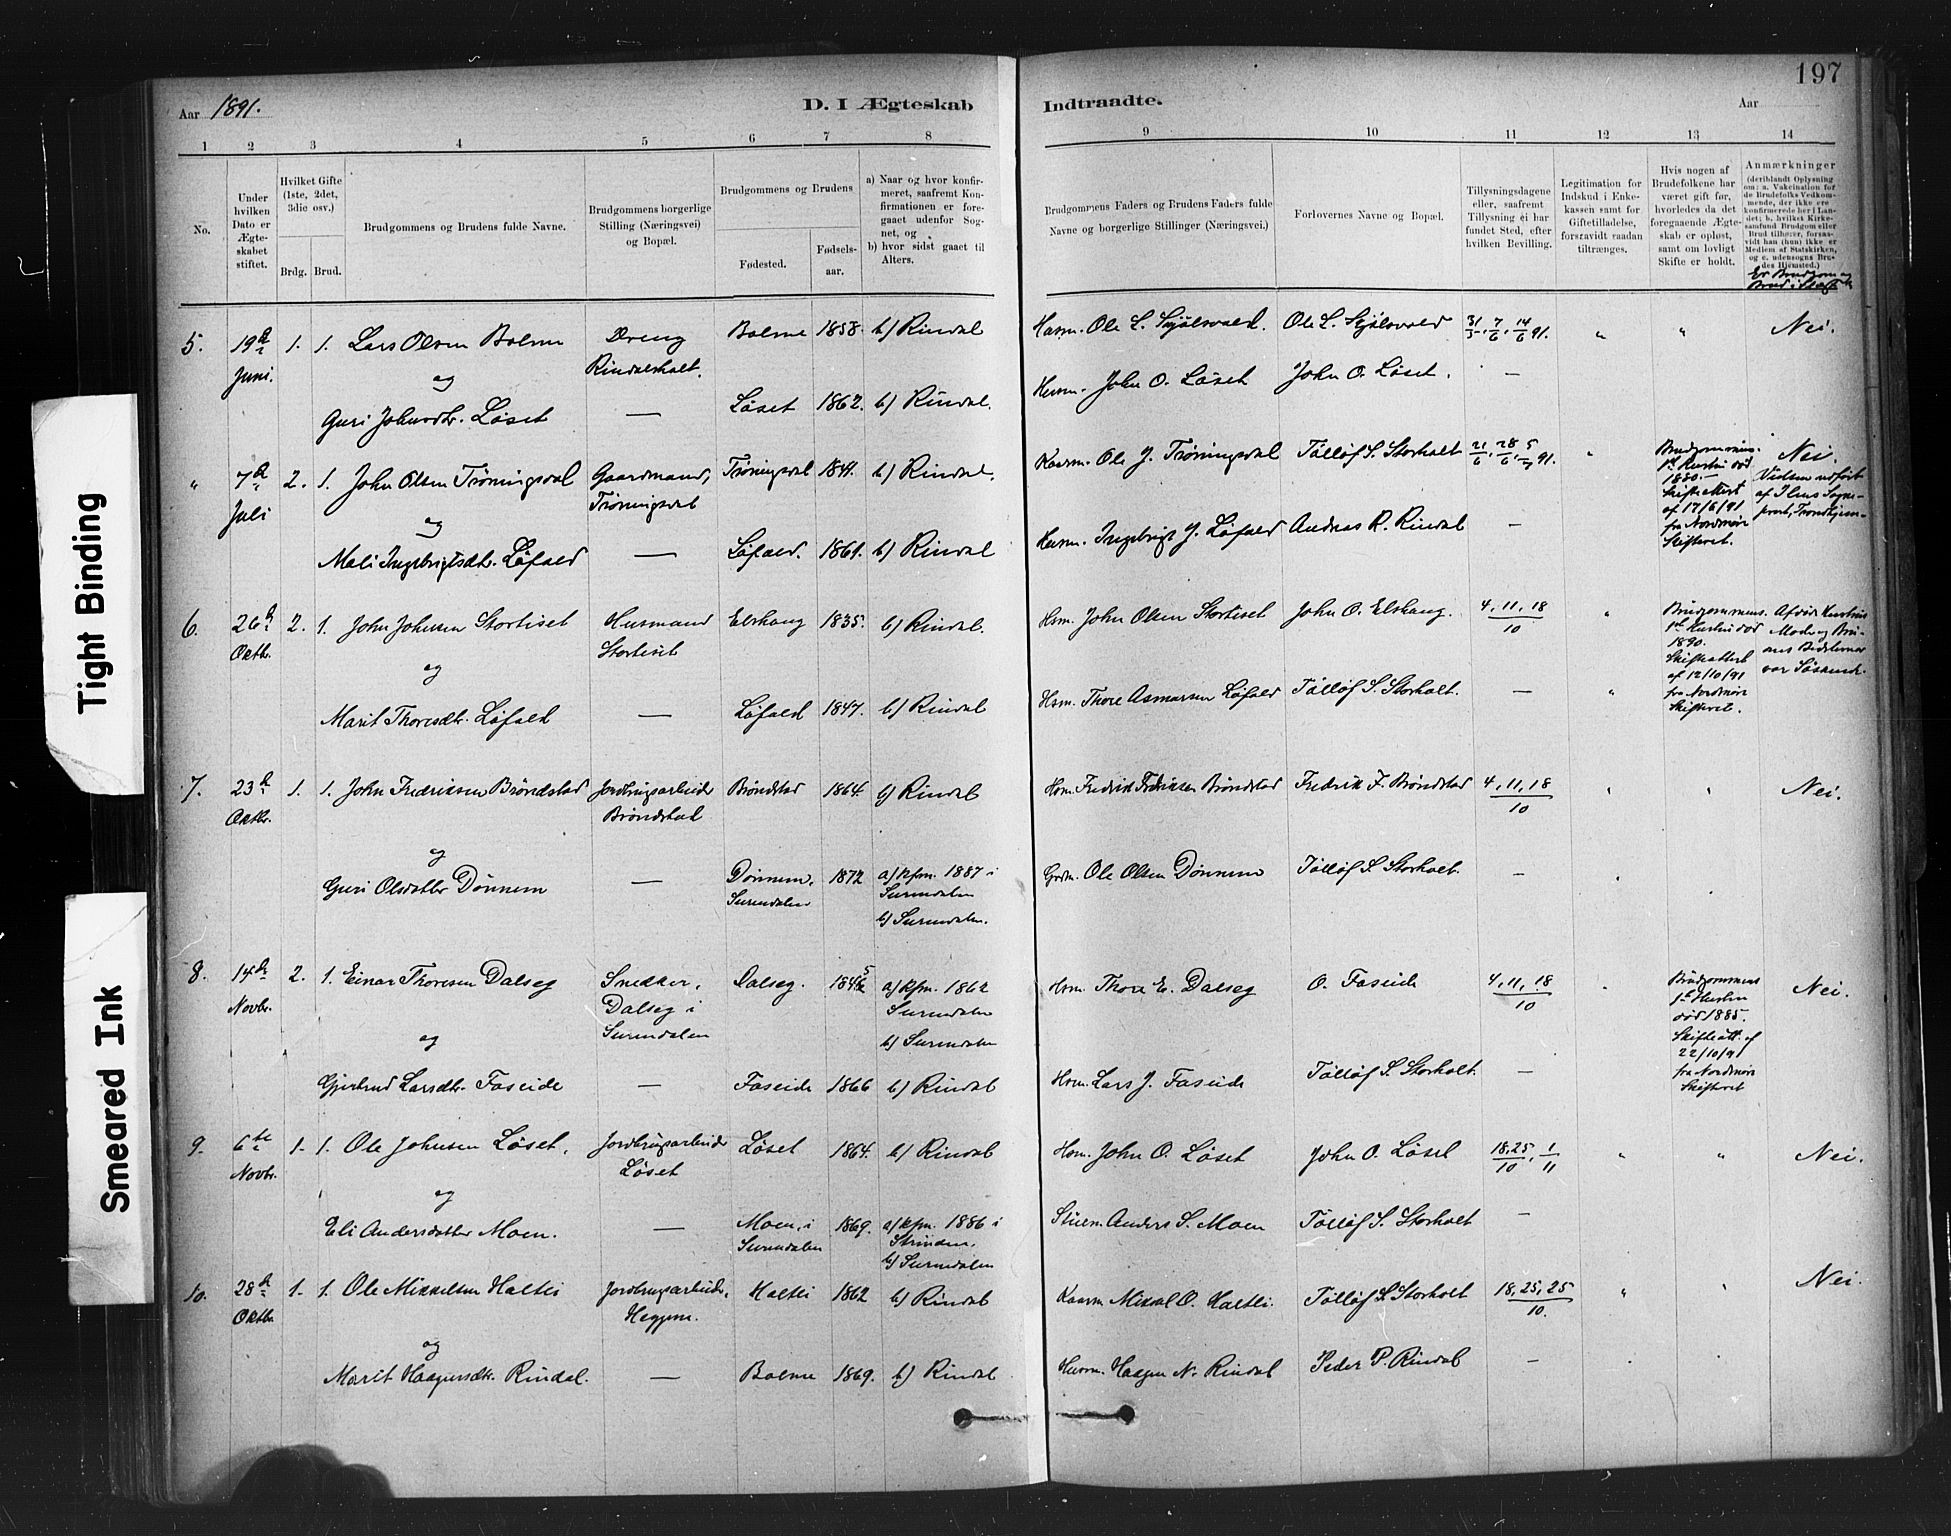 Tight Binding
Smeared Ink
197
Aar 1891.
D. I Ægteskab Indtraadte.
Aar
1 2 3 4 5 6 7 8 9 10 11 12 13 14
No.
Under hvilken Dato er Ægteskabet stiftet.
Hvilket Gifte (1ste, 2det, 3die osv.)
Brdg. Brud.
Brudgommens og Brudens fulde Navne.
Brudgommens borgerlige Stilling (Næringsvei) og Bopæl.
Brudgommens og Brudens
Fødested. Fødselsaar.
a) Naar og hvor konfirmeret, saafremt Konfirmationen er foregaaet udenfor Sognet, og
b) hvor sidst gaaet til Alters.
Brudgommens Faders og Brudens Faders fulde Navne og borgerlige Stillinger (Næringsvei.)
Forlovernes Navne og Bopæl.
Tillysningsdagene eller, saafremt Tillysning ei har fundet Sted, efter hvilken Bevilling.
Legitimation for Indskud i Enkekassen samt for Giftetilladelse, forsaavidt saadan tiltrænges.
Hvis nogen af Brudefolkene har været gift før, hvorledes da det foregaaende Ægteskab er opløst, samt om lovligt Skifte er holdt.
Anmærkninger
(deriblandt Oplysning om: a. Vakcination for de Brudefolks Vedkommende, der ikke ere konfirmerede her i Landet; b. hvilket Kirkesamfund Brudgom eller Brud tilhører, forsaavidt han (hun) ikke er Medlem af Statskirken, og c. udensogns Brudes Hjemsted.)
Er Brudgom og
5. 19de Juni. 1. 1. Lars Olsen Bolme Dreng Rindalsholt. Bolme 1858. b) Rindal Ole L. Ole L. 31/5, 7/6, 14/6 91. " " Nei.
og
Guri Johnsdtr. Løset — Løset 1862. b) Rindal. Husm. John O. Løset John O. Løset. —
" 7de Juli 2. 1. John Olsen Trøningsdal Gaardmand, Trøningsdal Trøningsdal 1841. b) Rindal. Ole J. Trøningsdal Tølløf S. Storholt 21/6, 28/6, 5/7 91. " Brudgommens 1ste Hustru død 1880. Skifteattest af 17/6/91 fra Nordmøre Skifteret. Nei. Vielsen udført af Ilens Sogneprest, Trondhjem
og
Mali Ingebrigtsdtr. Løfald — Løfald. 1861. b) Rindal Husm. Ingebrigt J. Løfald Andreas R. Rindal —
6. 26de Oktbr. 2. 1. John Johnsen Stortiset Husmand Stortiset Elshaug 1835. b) Rindal. Hsm. John Olsen Stortiset John O. Elshaug. 4, 11, 18/10 " Brudgommens 1ste Hustru død 1890. Skifteattest af 12/10/91 fra Nordmøre Skifteret. Afdøde Hustrus Moder og Brudens Bedstemor var Søskende.
og
Marit Thoresdtr. Løfald — Løfald 1847. b) Rindal Hsm. Thore Asmarsen Løfald Tølløf S. Storholt. — "
7. 23de Oktbr. 1. 1. John Fredriksen Brøndstad Jordbrugsarbeider Brøndstad Brøndstad 1864. b) Rindal Hsm. Fredrik Fredriksen Brøndstad Fredrik F. Brøndstad 4, 11, 18/10 " " Nei.
og
Guri Olsdatter Dønnem — Dønnem, Surendalen 1872 a) kfm. 1887 i Surendalen b) Surendalen. Grdm. Ole Olsen Dønnem Tølløf S. Storholt. —
8. 14de Novbr. 2. 1. Einar Thoresen Dalseg Snedker, Dalseg i Surendalen Dalseg. 1845 a) kfm. 1862 Surendalen b) Surendalen Hsm. Thore E. Dalseg O. Faseide 4, 11, 18/10 " Brudgommens 1ste Hustru død 1885. Skifteatt. af 22/10/91 fra Nordmøre Skifteret Nei.
og
Gjertrud Larsdtr. Faseide — Faseide 1866 b) Rindal Hsm. Lars J. Faseide Tølløf S. Storholt. —
9. 6te Novbr. 1. 1. Ole Johnsen Løset. Jordbrugsarbeider Løset Løset 1864. b) Rindal Hsm. John O. Løset John O. Løset 18, 25/10, 1/11 " " Nei.
og
Eli Andersdatter Moen. — Moen, i Surendalen 1869. a) kfm. 1886 i Strinden. b) Surendalen Anders S. Moen Tølløf S. Storholt —
10. 28de Oktbr. 1. 1. Ole Mikkelsen Haltli Jordbrugsarbeider, Heggem. Haltli 1862 b) Rindal Mikkel O. Haltli. Tølløf S. Storholt 18, 25, 25/10. " " Nei.
og
Marit Haagensdtr. Rindal. — Bolme 1869. b) Rindal Husm. Haagen N. Rindal Peder P. Rindal —